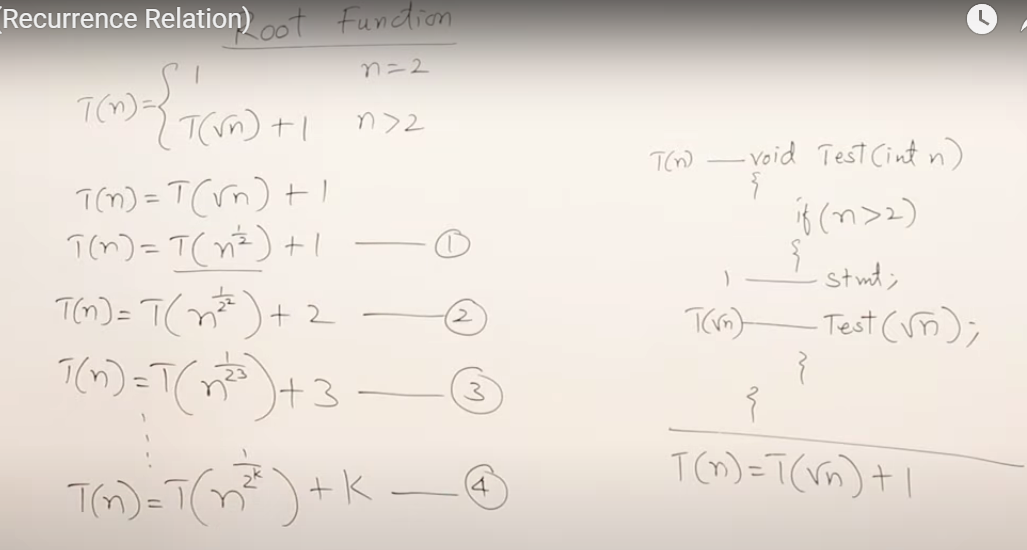 (Recurrence Relation)
Root Function
T(n) = { 1 n = 2
T(√n) + 1 n > 2
T(n) = T(√n) + 1
T(n) = T(n^(1/2)) + 1 —— ①
T(n) = T(n^(1/2²)) + 2 —— ②
T(n) = T(n^(1/2³)) + 3 —— ③
⋮
T(n) = T(n^(1/2^k)) + K —— ④
T(n) — void Test(int n)
{
if (n>2)
{
1 —— stmt;
T(√n) —— Test(√n);
}
}
T(n) = T(√n) + 1